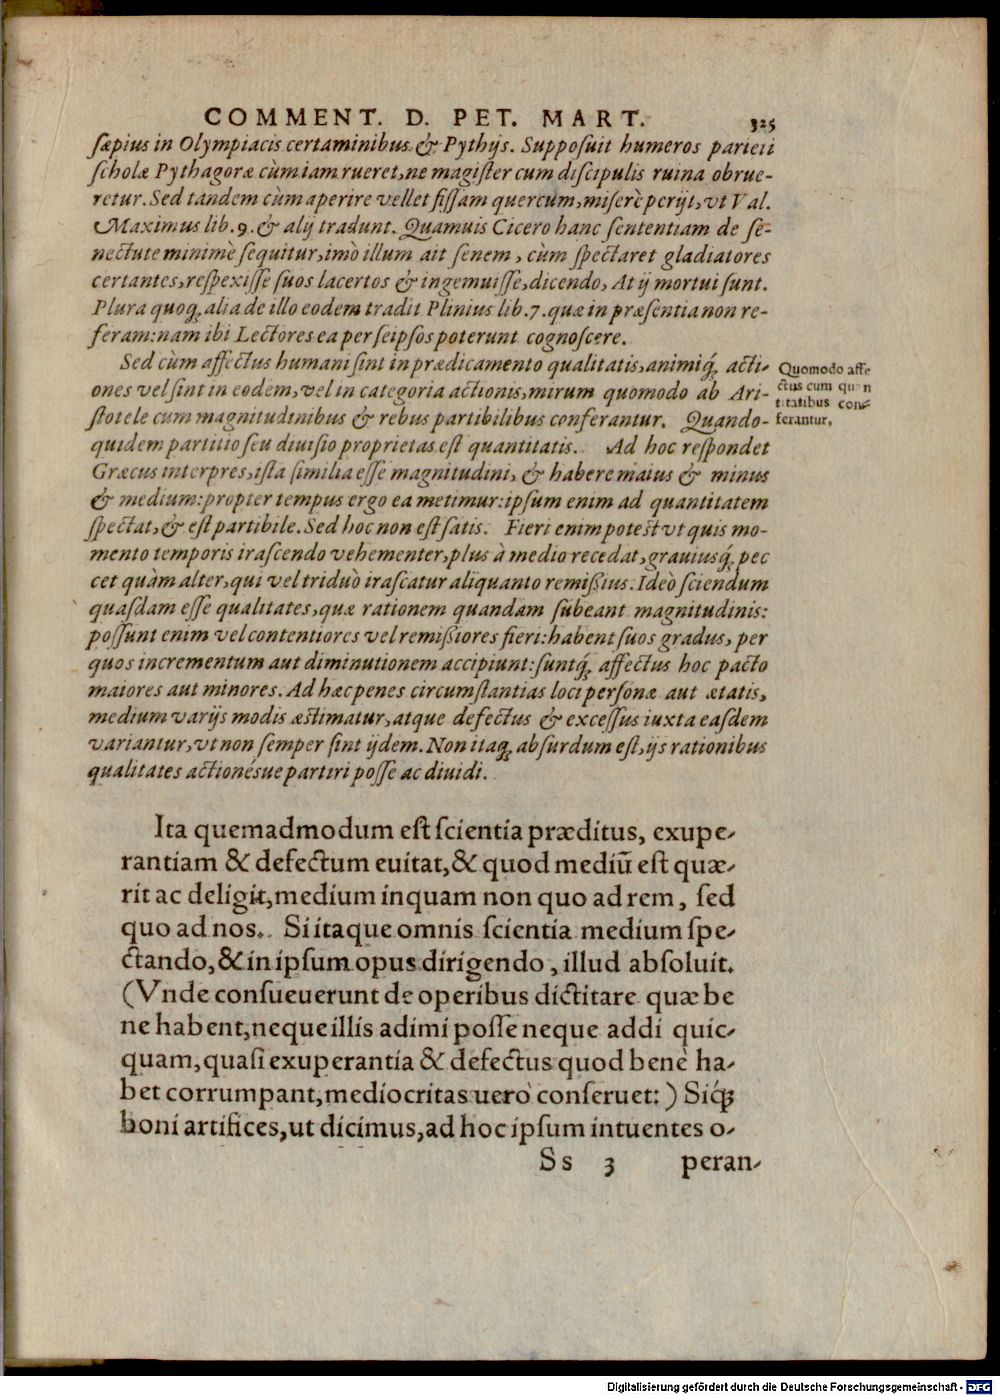 COMMENT. D. PET. MART. 325
sæpius in Olympiacis certaminibus & Pythijs. Supposuit humeros parieti
scholæ Pythagoræ cùm iam rueret, ne magister cum discipulis ruina obrue-
retur. Sed tandem cùm aperire vellet fissam quercum, miserè perijt, vt Val.
Maximus lib. 9. & alij tradunt. Quamuis Cicero hanc sententiam de se-
nectute minimè sequitur, imò illum ait senem, cùm spectaret gladiatores
certantes, respexisse suos lacertos & ingemuisse, dicendo, At ij mortui sunt.
Plura quoq; alia de illo eodem tradit Plinius lib. 7. quæ in præsentia non re-
feram: nam ibi Lectores ea per seipsos poterunt cognoscere.
Sed cùm affectus humani sint in prædicamento qualitatis, animiq́; acti-
ones vel sint in eodem, vel in categoria actionis, mirum quomodo ab Ari-
stotele cum magnitudinibus & rebus partibilibus conferantur. Quando-
quidem partitio seu diuisio proprietas est quantitatis. Ad hoc respondet
Græcus interpres, ista similia esse magnitudini, & habere maius & minus
& medium: propter tempus ergo ea metimur: ipsum enim ad quantitatem
spectat, & est partibile. Sed hoc non est satis. Fieri enim potest vt quis mo-
mento temporis irascendo vehementer, plus à medio recedat, grauiusq́; pec
cet quàm alter, qui vel triduò irascatur aliquanto remißius: Ideò sciendum
quasdam esse qualitates, quæ rationem quandam subeant magnitudinis:
possunt enim vel contentiores vel remißiores fieri: habent suos gradus, per
quos incrementum aut diminutionem accipiunt: suntq́; affectus hoc pacto
maiores aut minores. Ad hæc penes circumstantias loci personæ aut ætatis,
medium varijs modis æstimatur, atque defectus & excessus iuxta easdem
variantur, vt non semper sint ijdem. Non itaq; absurdum est, ijs rationibus
qualitates actionésue partiri posse ac diuidi.
Quomodo affe
ctus cum quan
titatibus con-
ferantur,
Ita quemadmodum est scientia præditus, exupe-
rantiam & defectum euitat, & quod mediū est quæ-
rit ac deligit, medium inquam non quo ad rem, sed
quo ad nos. Si itaque omnis scientia medium spe-
ctando, & in ipsum opus dirigendo, illud absoluit.
(Vnde consueuerunt de operibus dictitare quæ be
ne habent, neque illis adimi posse neque addi quic-
quam, quasi exuperantia & defectus quod benè ha-
bet corrumpant, mediocritas uerò conseruet:) Siq́;
boni artifices, ut dicimus, ad hoc ipsum intuentes o-
Ss 3 peran-
Digitalisierung gefördert durch die Deutsche Forschungsgemeinschaft - DFG